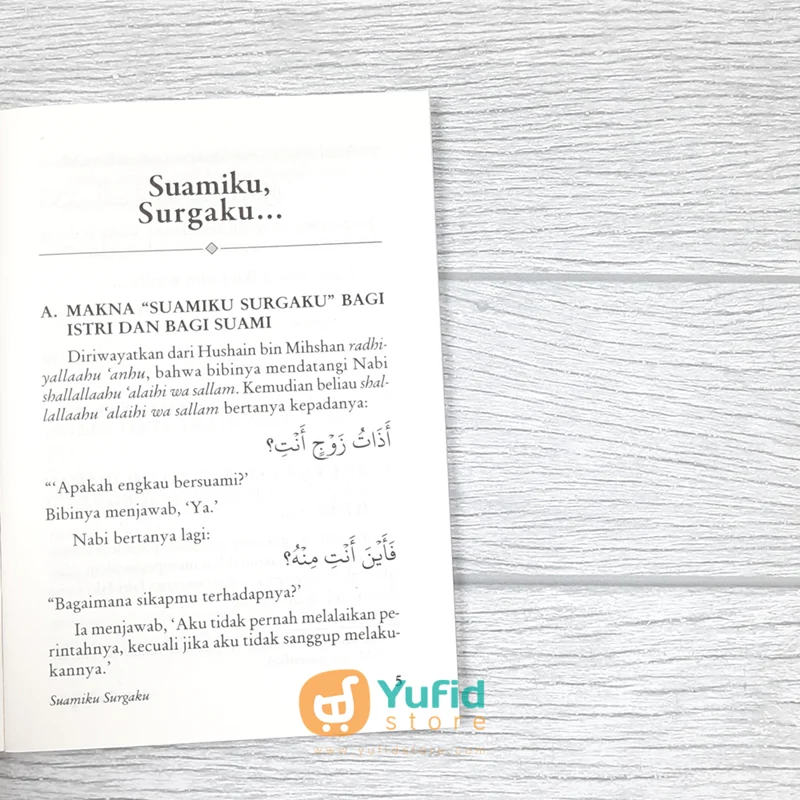 Suamiku,
Surgaku...
A. MAKNA “SUAMIKU SURGAKU” BAGI
ISTRI DAN BAGI SUAMI
Diriwayatkan dari Hushain bin Mihshan radhi-
yallaahu ‘anhu, bahwa bibinya mendatangi Nabi
shallallaahu ‘alaihi wa sallam. Kemudian beliau shal-
lallaahu ‘alaihi wa sallam bertanya kepadanya:
أَذَاتُ زَوْجٍ أَنْتِ؟
“‘Apakah engkau bersuami?’
Bibinya menjawab, ‘Ya.’
Nabi bertanya lagi:
فَأَيْنَ أَنْتِ مِنْهُ؟
“Bagaimana sikapmu terhadapnya?’
Ia menjawab, ‘Aku tidak pernah melalaikan pe-
rintahnya, kecuali jika aku tidak sanggup melaku-
kannya.’
Suamiku Surgaku
5
Yufid
store
www.yufidstore.com